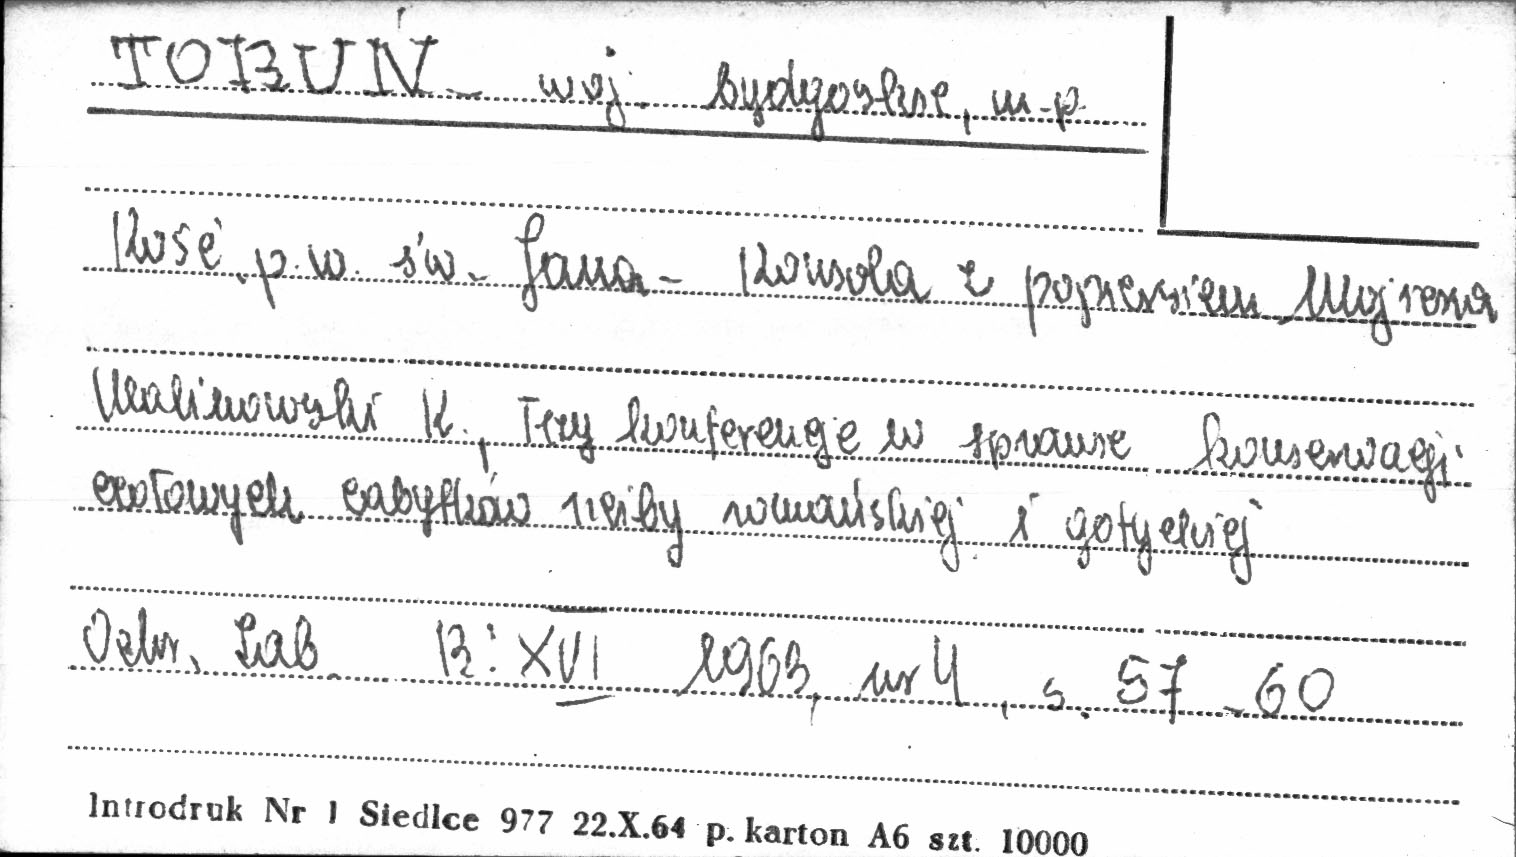 TORUŃ - woj. bydgoskie, m.p.
Kość. p.w. św. Jana - Konsola z popiersiem Mojżesza
Malinowski K., Trzy konferencje w sprawie konserwacji
czołowych zabytków rzeźby romańskiej i gotyckiej
Ochr. Zab. R: XVI 1963, nr 4, s. 57-60
Introdruk Nr 1 Siedlce 977 22.X.64 p. karton A6 szt. 10000